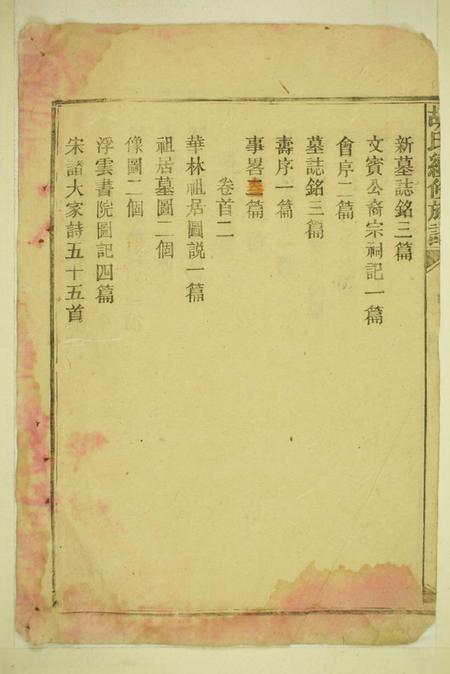 胡氏續修族譜
新墓誌銘三篇
文賓公裔宗祠記一篇
會序二篇
墓誌銘三篇
壽序一篇
事畧三篇
卷首二
華林祖居圖説一篇
祖居墓圖二個
像圖二個
浮雲書院圖記四篇
宋諸大家詩五十五首